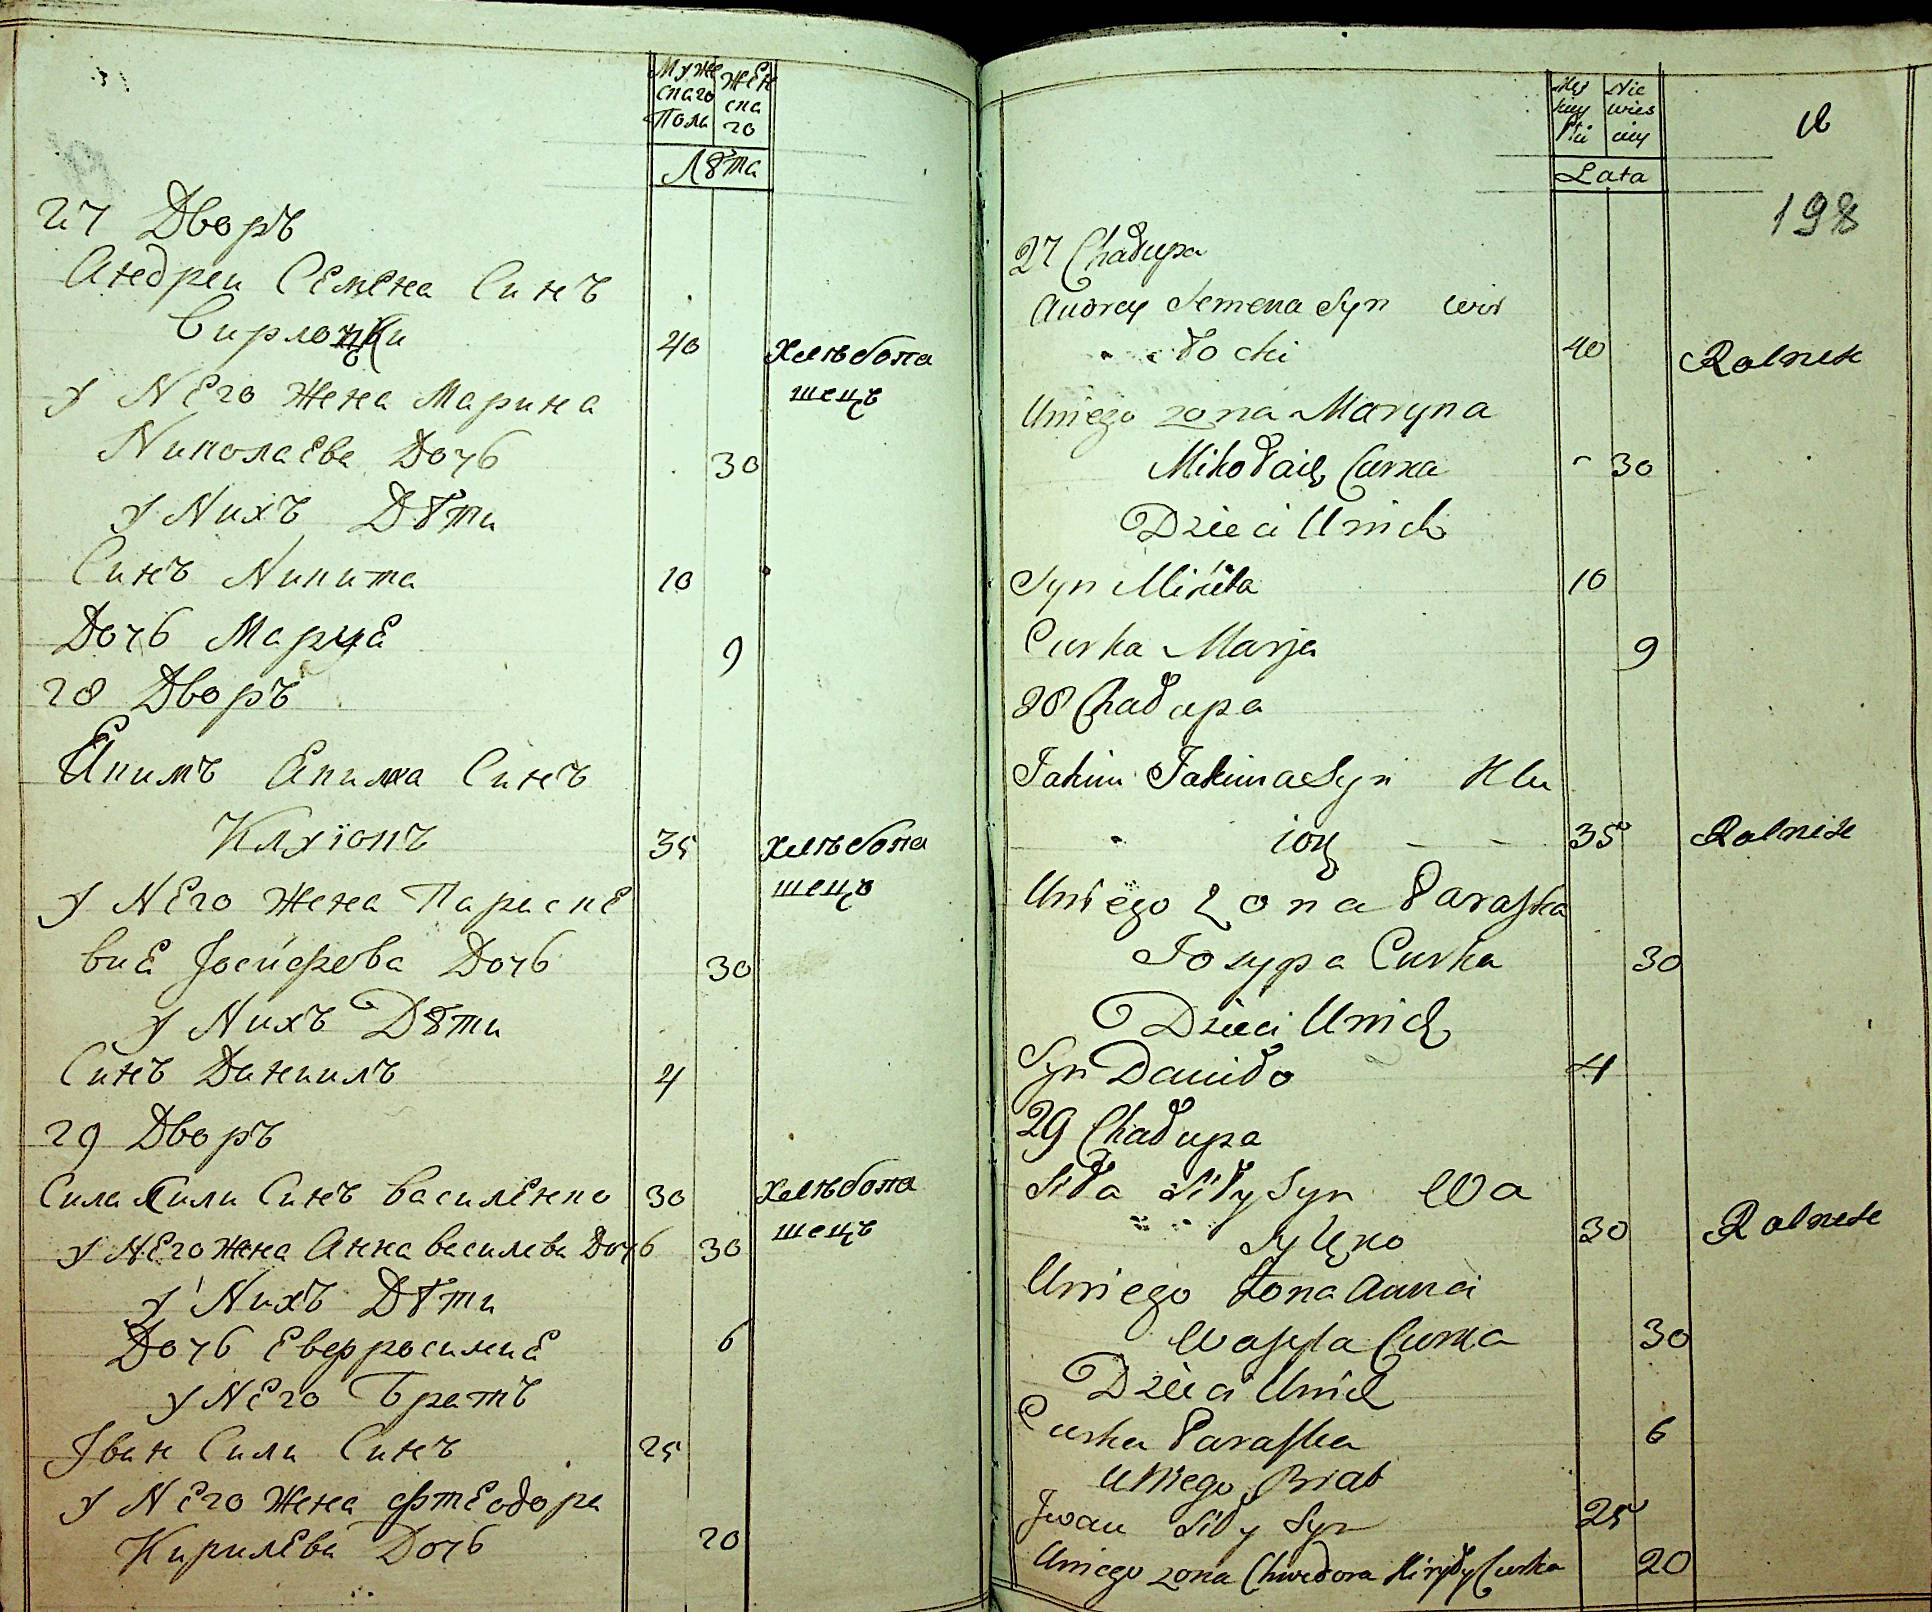 Муже
скаго
Пола
Жен
ска
го
Лѣта
27 Дворъ
Андреи Семена Синъ
Вирлоцки
40
хлѣбопа
шецъ
У Него Жена Марина
Николаева Дочь
30
У Нихъ Дѣти
Синъ Никита
10
Дочь Мария
9
28 Дворъ
Якимъ Якима Синъ
Клуіокъ
35
хлѣбопа
шецъ
У Него Жена Параске
виа Іосифова Дочь
30
У Нихъ Дѣти
Синъ Даниилъ
4
29 Дворъ
Сила Сили Синъ Василенко
30
хлѣбопа
шецъ
У Него Жена Анна Василева Дочь
30
У Нихъ Дѣти
Дочь Евфросиниа
6
У Него Братъ
Іван Сили Синъ
25
У Него Жена Фтеодора
Кирилева Дочь
20
Męz
kiey
Płci
Nie
wies
ciey
Lata
198
27 Chałupa
Andrey Semena Syn Wir
łocki
40
Rolnik
Uniego zona Maryna
Mikołaia Curka
30
Dzieci Unich
Syn Mikita
10
Curka Marja
9
28 Chałupa
Jakim Jakima Syn Klu
iok
35
Rolnik
Uniego Zona Paraska
Iosypa Curka
30
Dzieci Unich
Syn Daniło
4
29 Chałupa
Siła Siły Syn Wa
sylko
30
Rolnik
Uniego Zona Anna
Wasyla Curka
30
Dzieci Unich
Curka Paraska
6
Uniego Brat
Jwan Siły Syn
25
Uniego zona Chwedora Kiryły Curka
20